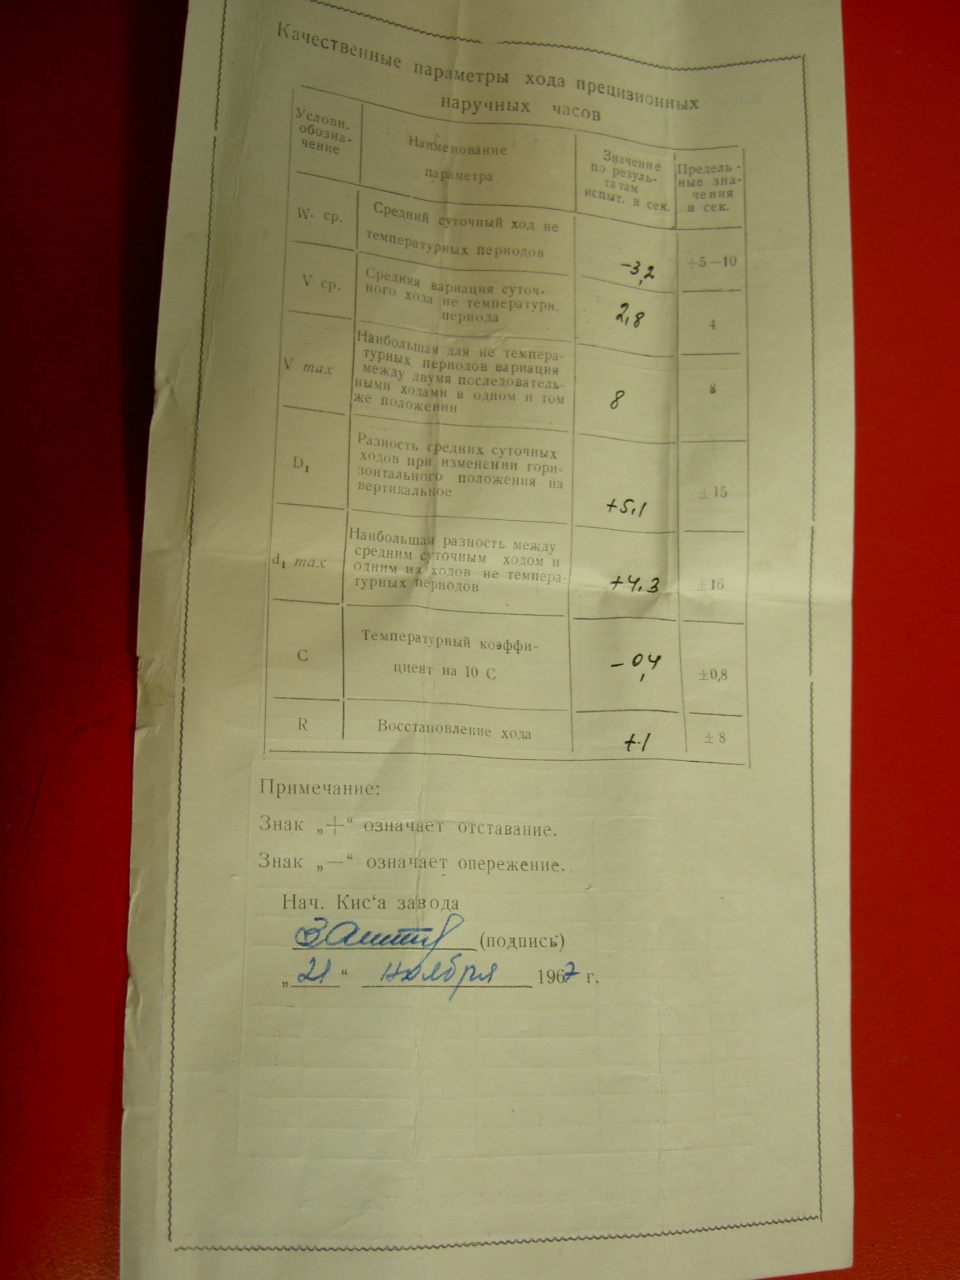 Качественные параметры хода прецизионных
наручных часов
Условн.
обозна-
чение
Наименование
параметра
Значение
по резуль-
татам
испыт. в сек.
Предель-
ные зна-
чения
в сек.
W. ср.
Средний суточный ход не
температурных периодов
-3,2
+5—10
V ср.
Средняя вариация суточ-
ного хода не температурн.
периода
2,8
4
V max
Наибольшая для не темпера-
турных периодов вариация
между двумя последователь-
ными ходами в одном и том
же положении
8
8
D₁
Разность средних суточных
ходов при изменении гори-
зонтального положения на
вертикальное
+5,1
±15
d₁ max
Наибольшая разность между
средним суточным ходом и
одним из ходов не темпера-
турных периодов
+4,3
±16
С
Температурный коэффи-
циент на 10 С
-0,4
±0,8
R
Восстановление хода
+1
± 8
Примечание:
Знак „+“ означает отставание.
Знак „—“ означает опережение.
Нач. Кис‘а завода
(подпись)
„21“ ноября 1967 г.